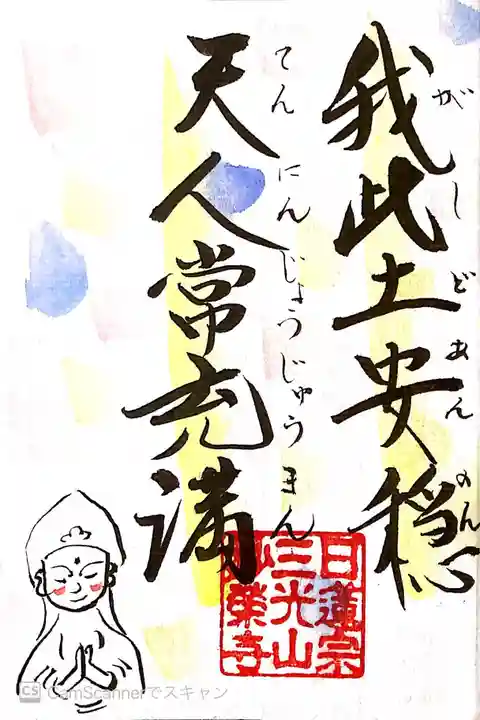 我此土安穏
がしどあんのん
天人常充満
てんにんじょうじゅうまん
日蓮宗
三光山
楽寺
CS CamScannerでスキャン